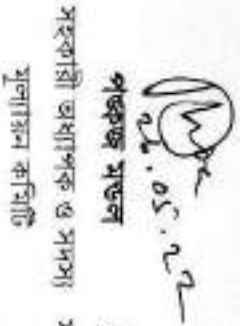 26.05.22
পঙ্কজ মন্ডল
সহকারী অধ্যাপক ও সদস্য
মূল্যায়ন কমিটি